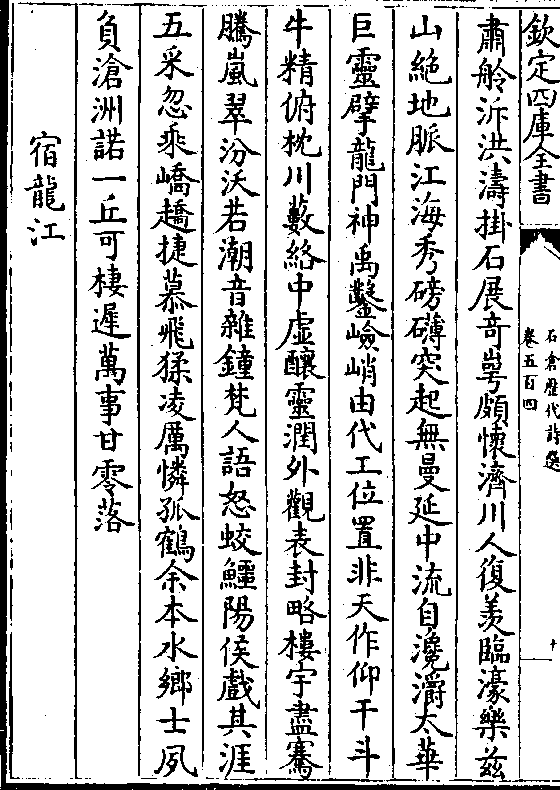 欽定四庫全書
石倉歷代詩選
卷五百四
肅舲泝洪濤掛石展奇崿頗懷濟川人復羨臨濠樂兹
山絶地脈江海秀磅礴突起無曼延中流自瀺灂太華
巨靈擘龍門神禹鑿嶮峭由代工位置非天作仰干斗
牛精俯枕川藪絡中虚釀靈潤外觀表封略樓宇盡騫
騰嵐翠汾沃若潮音雜鐘梵人語怒蛟鱷陽侯戲其涯
五采忽乘嶠趫捷慕飛猱凌厲憐孤鶴余本水鄉士夙
負滄洲諾一丘可棲遲萬事甘零落
宿龍江